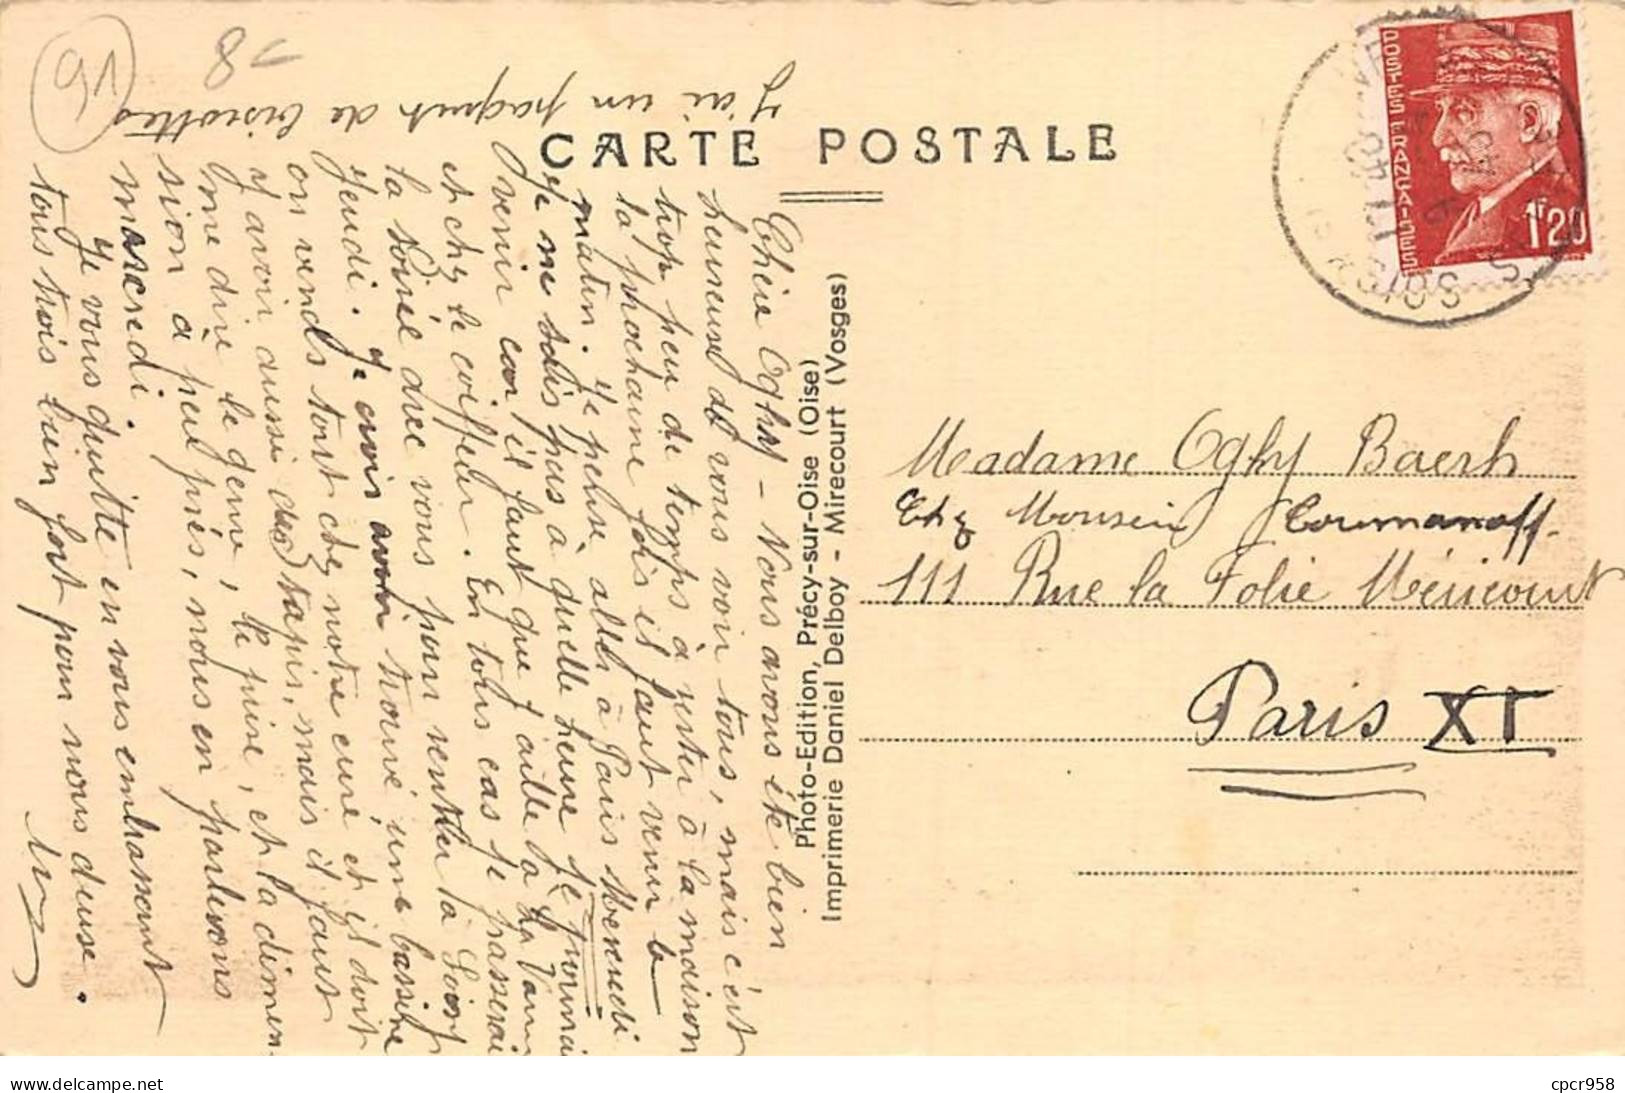 CARTE POSTALE
POSTES FRANÇAISES
1F20
91
8
Chère Oghy - Nous avons été bien
heureuse de vous voir tous, mais c'est
trop peu de temps à rester à la maison
la prochaine fois il faut venir le
matin. Je pense aller à Paris Mercredi
Je ne sais pas à quelle heure je pourrai
venir car il faut que j'aille à La Varenne
et chez le coiffeur. En tous cas je passerai
la soirée avec vous pour rentrer là
Jeudi. Je crois avoir trouvé une bassine
on vends tout chez notre curé et il doit
y avoir aussi des tapis, mais il faut
me dire le genre, le prix, et la dimen
sion à peu près, nous en parlerons
mercredi.
Je vous quitte en vous embrassant
tous trois bien fort pour nous deux.
J'ai un paquet de biscottes
Photo-Edition, Précy-sur-Oise (Oise)
Imprimerie Daniel Delboy - Mirecourt (Vosges)
Madame Oghy Baesh
Chez Monsieur Coumanoff
111 Rue la Folie Méricourt
Paris XI
cpcr958